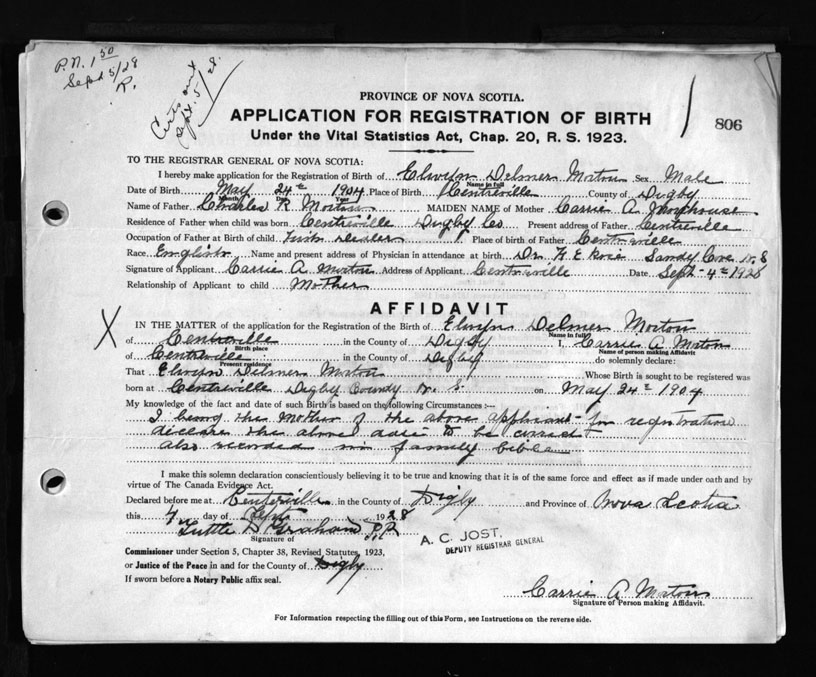 P.N. 1 50
Sept 5/28
R.
Certs out
Sept. 5/28.
PROVINCE OF NOVA SCOTIA.
APPLICATION FOR REGISTRATION OF BIRTH
806
Under the Vital Statistics Act, Chap. 20, R. S. 1923.
TO THE REGISTRAR GENERAL OF NOVA SCOTIA:
I hereby make application for the Registration of Birth of Elwyn Delmer Morton Sex Male
Name in full
Date of Birth May 24th 1904 Place of Birth Centreville County of Digby
Month Day Year
Name of Father Charles R Morton MAIDEN NAME of Mother Carrie A
Residence of Father when child was born Centreville Digby Co Present address of Father Centreville
Occupation of Father at Birth of child Fish Dealer Place of birth of Father Centreville
Race English Name and present address of Physician in attendance at birth Dr. Sandy Cove N.S
Signature of Applicant Carrie A Morton Address of Applicant Centreville Date Sept-4th 1928
Relationship of Applicant to child Mother
AFFIDAVIT
X
IN THE MATTER of the application for the Registration of the Birth of Elwyn Delmer Morton
Name in full
of Centreville in the County of Digby I, Carrie A Morton
Birth place
Name of person making Affidavit
of Centreville in the County of Digby do solemnly declare:
Present residence
That Elwyn Delmer Morton Whose Birth is sought to be registered was
born at Centreville Digby County N. S. on May 24th 1904
My knowledge of the fact and date of such Birth is based on the following Circumstances :—
I being the Mother of the above applicant for registration
declare the above date to be correct
also recorded in family bible
I make this solemn declaration conscientiously believing it to be true and knowing that it is of the same force and effect as if made under oath and by
virtue of The Canada Evidence Act.
Declared before me at Centerville in the County of Digby and Province of Nova Scotia
this 4 day of Sept 1928
Tuttle D Graham
Signature of
A. C. JOST,
DEPUTY REGISTRAR GENERAL
Commissioner under Section 5, Chapter 38, Revised Statutes, 1923,
or Justice of the Peace in and for the County of Digby
If sworn before a Notary Public affix seal.
Carrie A Morton
Signature of Person making Affidavit.
For Information respecting the filling out of this Form, see Instructions on the reverse side.